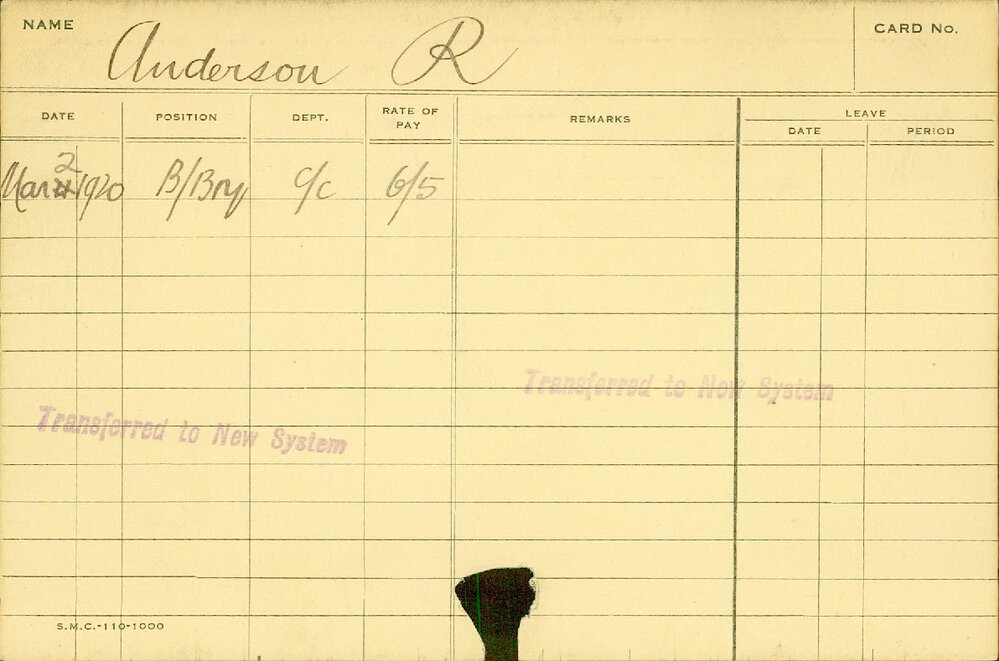 NAME Anderson R CARD No.
DATE POSITION DEPT. RATE OF PAY REMARKS LEAVE
DATE PERIOD
Mar 2 1920 B/Boy c/c 6/5
Transferred to New System
Transferred to New System
S.M.C.-110-1000